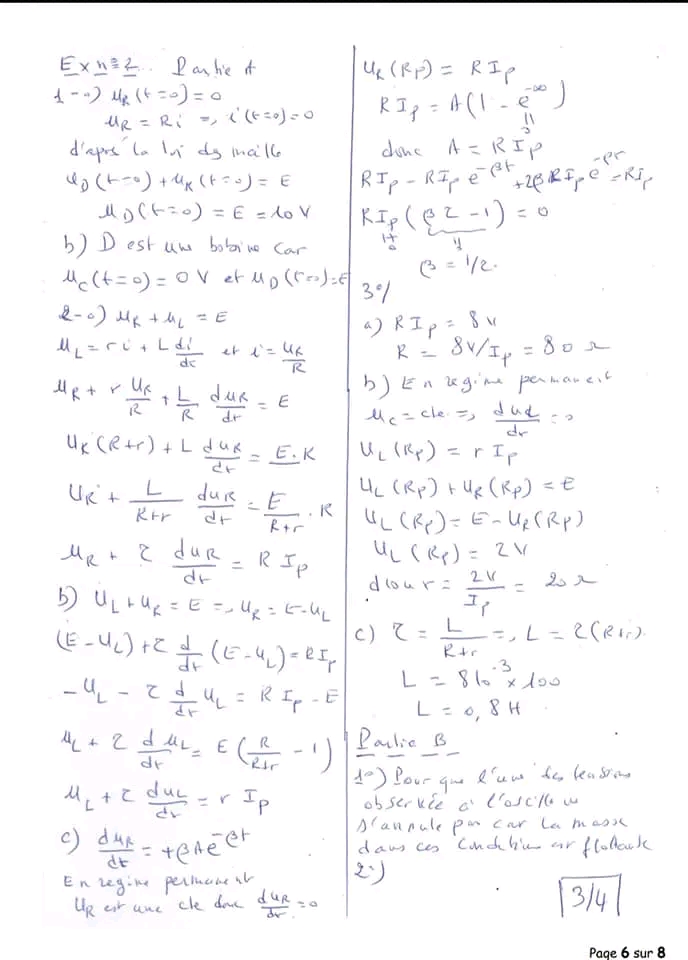 Ex n° 2. Partie A
1-a) u_R(t=0) = 0
u_R = Ri ⇒ i(t=0) = 0
d'après la loi des maille
u_D(t=0) + u_R(t=0) = E
u_D(t=0) = E = 10 V
b) D est une bobine car
u_C(t=0) = 0 V et u_D(t=0) = E
2-a) u_R + u_L = E
u_L = ri + L di/dt et i = u_R/R
u_R + r u_R/R + L/R du_R/dt = E
u_R(R+r) + L du_R/dt = E.R
u_R + L/(R+r) du_R/dt = E/(R+r) . R
u_R + τ du_R/dt = R I_p
b) u_L + u_R = E ⇒ u_R = E - u_L
(E - u_L) + τ d/dt (E - u_L) = R I_p
- u_L - τ d/dt u_L = R I_p - E
u_L + τ du_L/dt = E (R/(R+r) - 1)
u_L + τ du_L/dt = r I_p
c) du_R/dt = +βA e^{-βt}
En regime permanent
u_R est une cte donc du_R/dt = 0
u_R(Rp) = R I_p
R I_p = A(1 - e^{-∞})
donc A = R I_p
R I_p - R I_p e^{-βt} + τβ R I_p e^{-βt} = R I_p
R I_p (βτ - 1) = 0
β = 1/τ.
3°/
a) R I_p = 8 V
R = 8V/I_p = 80 Ω
b) En regime permanent
u_C = cte ⇒ du_C/dt = 0
u_L(Rp) = r I_p
u_L(Rp) + u_R(Rp) = E
u_L(Rp) = E - u_R(Rp)
u_L(Rp) = 2 V
d'où r = 2V/I_p = 20 Ω
c) τ = L/(R+r) ⇒ L = τ(R+r)
L = 8 10^{-3} × 100
L = 0,8 H
Partie B
1°) Pour que l'une des tensions
observée à l'oscillo
s'annule pas car la masse
dans ces condition est flottante
2°)
3/4
Page 6 sur 8